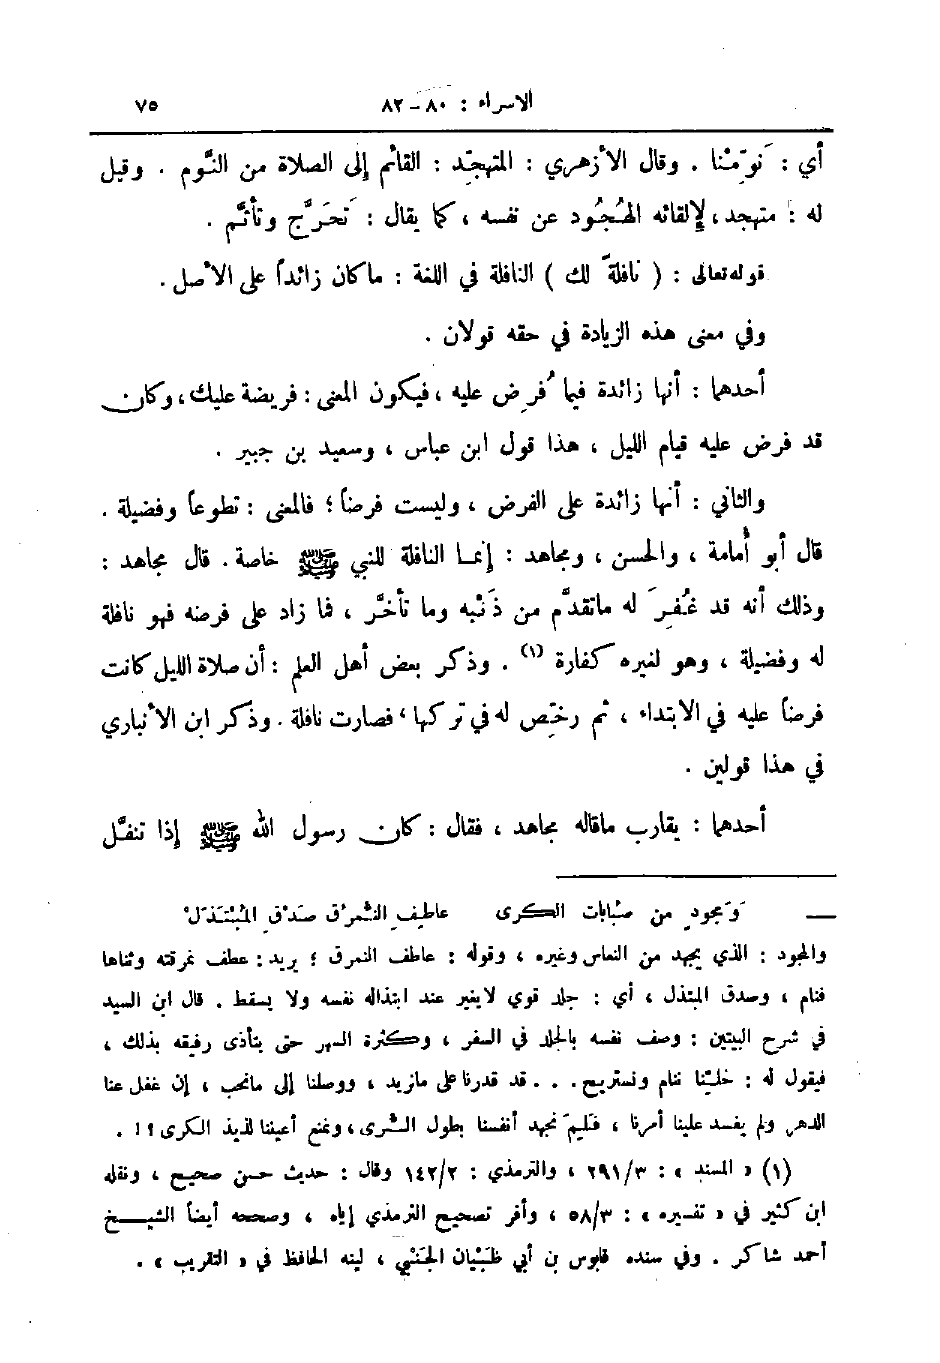 الاسراء : ٨٠ - ٨٢ ٧٥
أي : نَوِّمْنا . وقال الأزهري : المتهجِّد : القائم إلى الصلاة من النَّوم . وقيل
له : متهجد ، لإلقائه الهُجُود عن نفسه ، كما يقال : تَحَرَّج وتأثَّم .
قوله تعالى : ( نافلةً لك ) النافلة في اللغة : ماكان زائداً على الأصل .
وفي معنى هذه الزيادة في حقه قولان .
أحدهما : أنها زائدة فيما فُرِض عليه ، فيكون المعنى : فريضة عليك ، وكان
قد فرض عليه قيام الليل ، هذا قول ابن عباس ، وسعيد بن جبير .
والثاني : أنها زائدة على الفرض ، وليست فرضاً ؛ فالمعنى : تطوعاً وفضيلة .
قال أبو أُمامة ، والحسن ، ومجاهد : إنما النافلة للنبي ﷺ خاصة . قال مجاهد :
وذلك أنه قد غُفِرَ له ماتقدَّم من ذَنْبه وما تأخَّر ، فما زاد على فرضه فهو نافلة
له وفضيلة ، وهو لغيره كفارة (١) . وذكر بعض أهل العلم : أن صلاة الليل كانت
فرضاً عليه في الابتداء ، ثم رخِّص له في تركها ، فصارت نافلة . وذكر ابن الأنباري
في هذا قولين .
أحدهما : يقارب ماقاله مجاهد ، فقال : كان رسول الله ﷺ إذا تنفَّل
— وَمجودٍ من صُبابات الكرى عاطِفِ النُّمرُقِ صَدْقِ المُبْتَذَلْ
والمجود : الذي يجهد من النعاس وغيره ، وقوله : عاطف النمرق ؛ يريد : عطف نمرقته وثناها
فنام ، وصدق المبتذل ، أي : جلد قوي لايغير عند ابتذاله نفسه ولا يسقط . قال ابن السيد
في شرح البيتين : وصف نفسه بالجلد في السفر ، وكثرة السهر حتى يتأذى رفيقه بذلك ،
فيقول له : خلِّنا ننام ونستريح . . . قد قدرنا على مانريد ، ووصلنا إلى مانحب ، إن غفل عنا
الدهر ولم يفسد علينا أمرنا ، فَلِمَ نجهد أنفسنا بطول السُّرى ، ونمنع أعيننا لذيذ الكرى ؟! .
(١) « المسند » : ٢٩١/٣ ، والترمذي : ١٤٢/٢ وقال : حديث حسن صحيح ، ونقله
ابن كثير في « تفسيره » : ٥٨/٣ ، وأقر تصحيح الترمذي إياه ، وصححه أيضاً الشيخ
أحمد شاكر . وفي سنده قابوس بن أبي ظَبْيان الجَنْبي ، لينه الحافظ في « التقريب » .